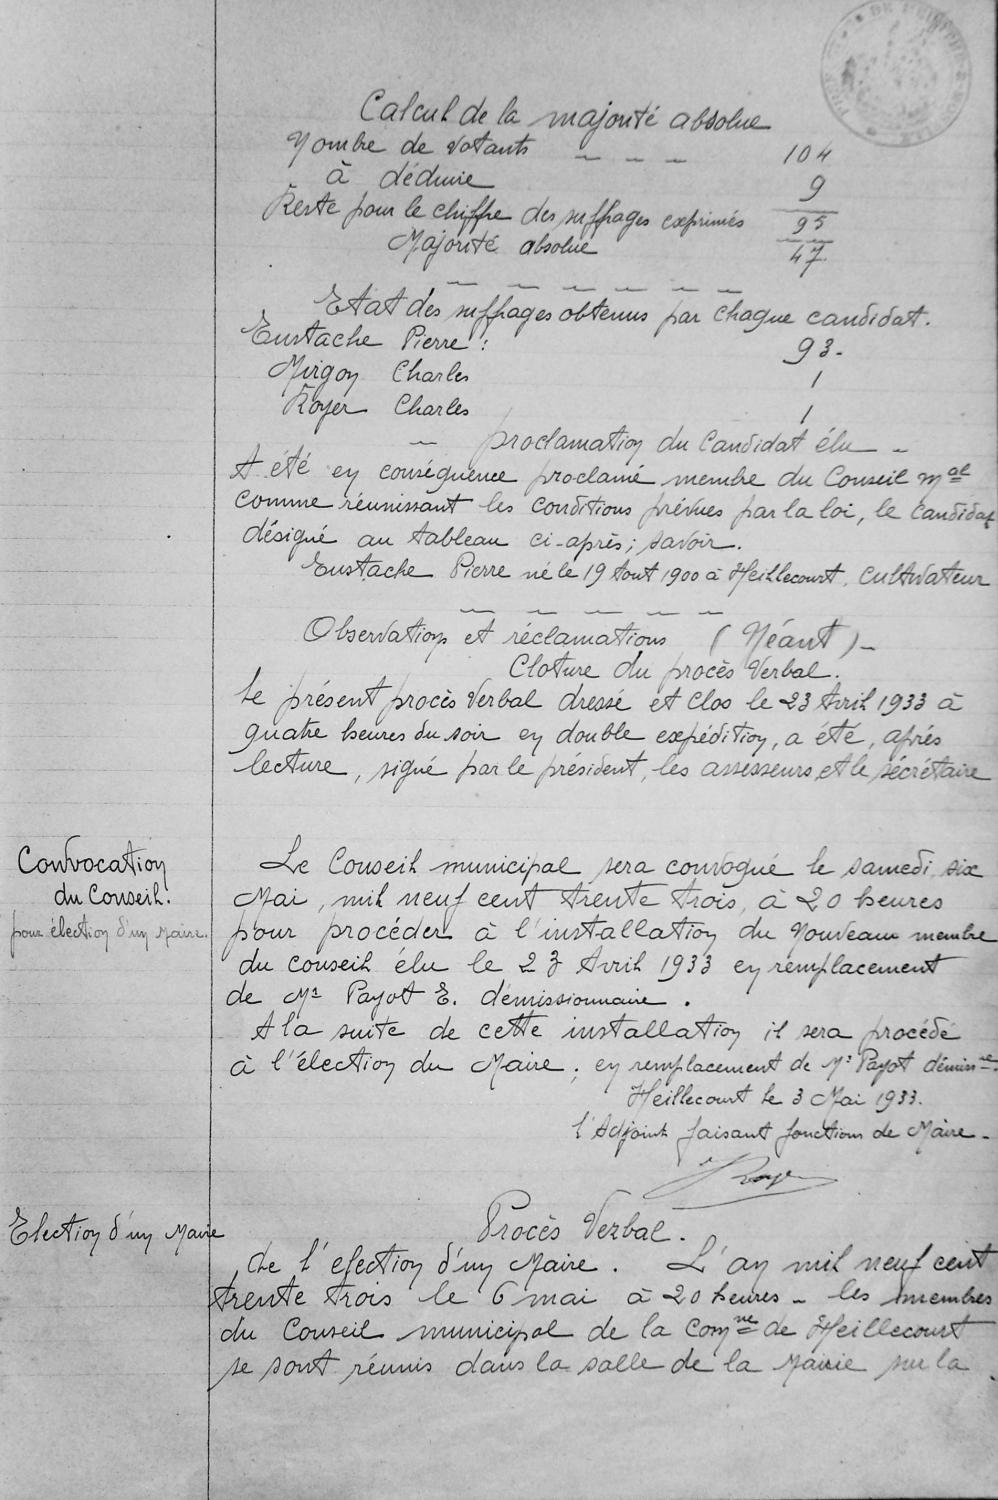 Calcul de la majorité absolue
Nombre de votants _ _ _ 104
à déduire 9
Reste pour le chiffre des suffrages exprimés 95
Majorité absolue 47
Etat des suffrages obtenus par chaque candidat.
Eustache Pierre : 93.
Mirgon Charles 1
Royer Charles 1
proclamation du Candidat élu _
A été en conséquence proclamé membre du Conseil mal
comme réunissant les conditions prévues par la loi, le candidat
désigné au tableau ci-après ; savoir.
Eustache Pierre né le 19 Aout 1900 à Heillecourt, cultivateur
Observations et réclamations (Néant) _
Cloture du procès Verbal.
Le présent procès Verbal dressé et clos le 23 Avril 1933 à
quatre heures du soir en double expédition, a été, après
lecture, signé par le président, les assesseurs et le sécrétaire
Convocation
du Conseil.
pour élection d'un Maire.
Le Conseil municipal sera convoqué le samedi six
Mai, mil neuf cent trente trois, à 20 heures
pour procéder à l'installation du Nouveau membre
du conseil élu le 23 Avril 1933 en remplacement
de Mr Payot E. démissionnaire.
A la suite de cette installation il sera procédé
à l'élection du Maire ; en remplacement de Mr Payot démissre.
Heillecourt le 3 Mai 1933.
l'Adjoint faisant fonctions de Maire _
Royer
Election d'un Maire
Procès Verbal.
de l'election d'un Maire. L'an mil neuf cent
trente trois le 6 mai à 20 heures _ les membres
du Conseil municipal de la Comne de Heillecourt
se sont réunis dans la salle de la Mairie sur la